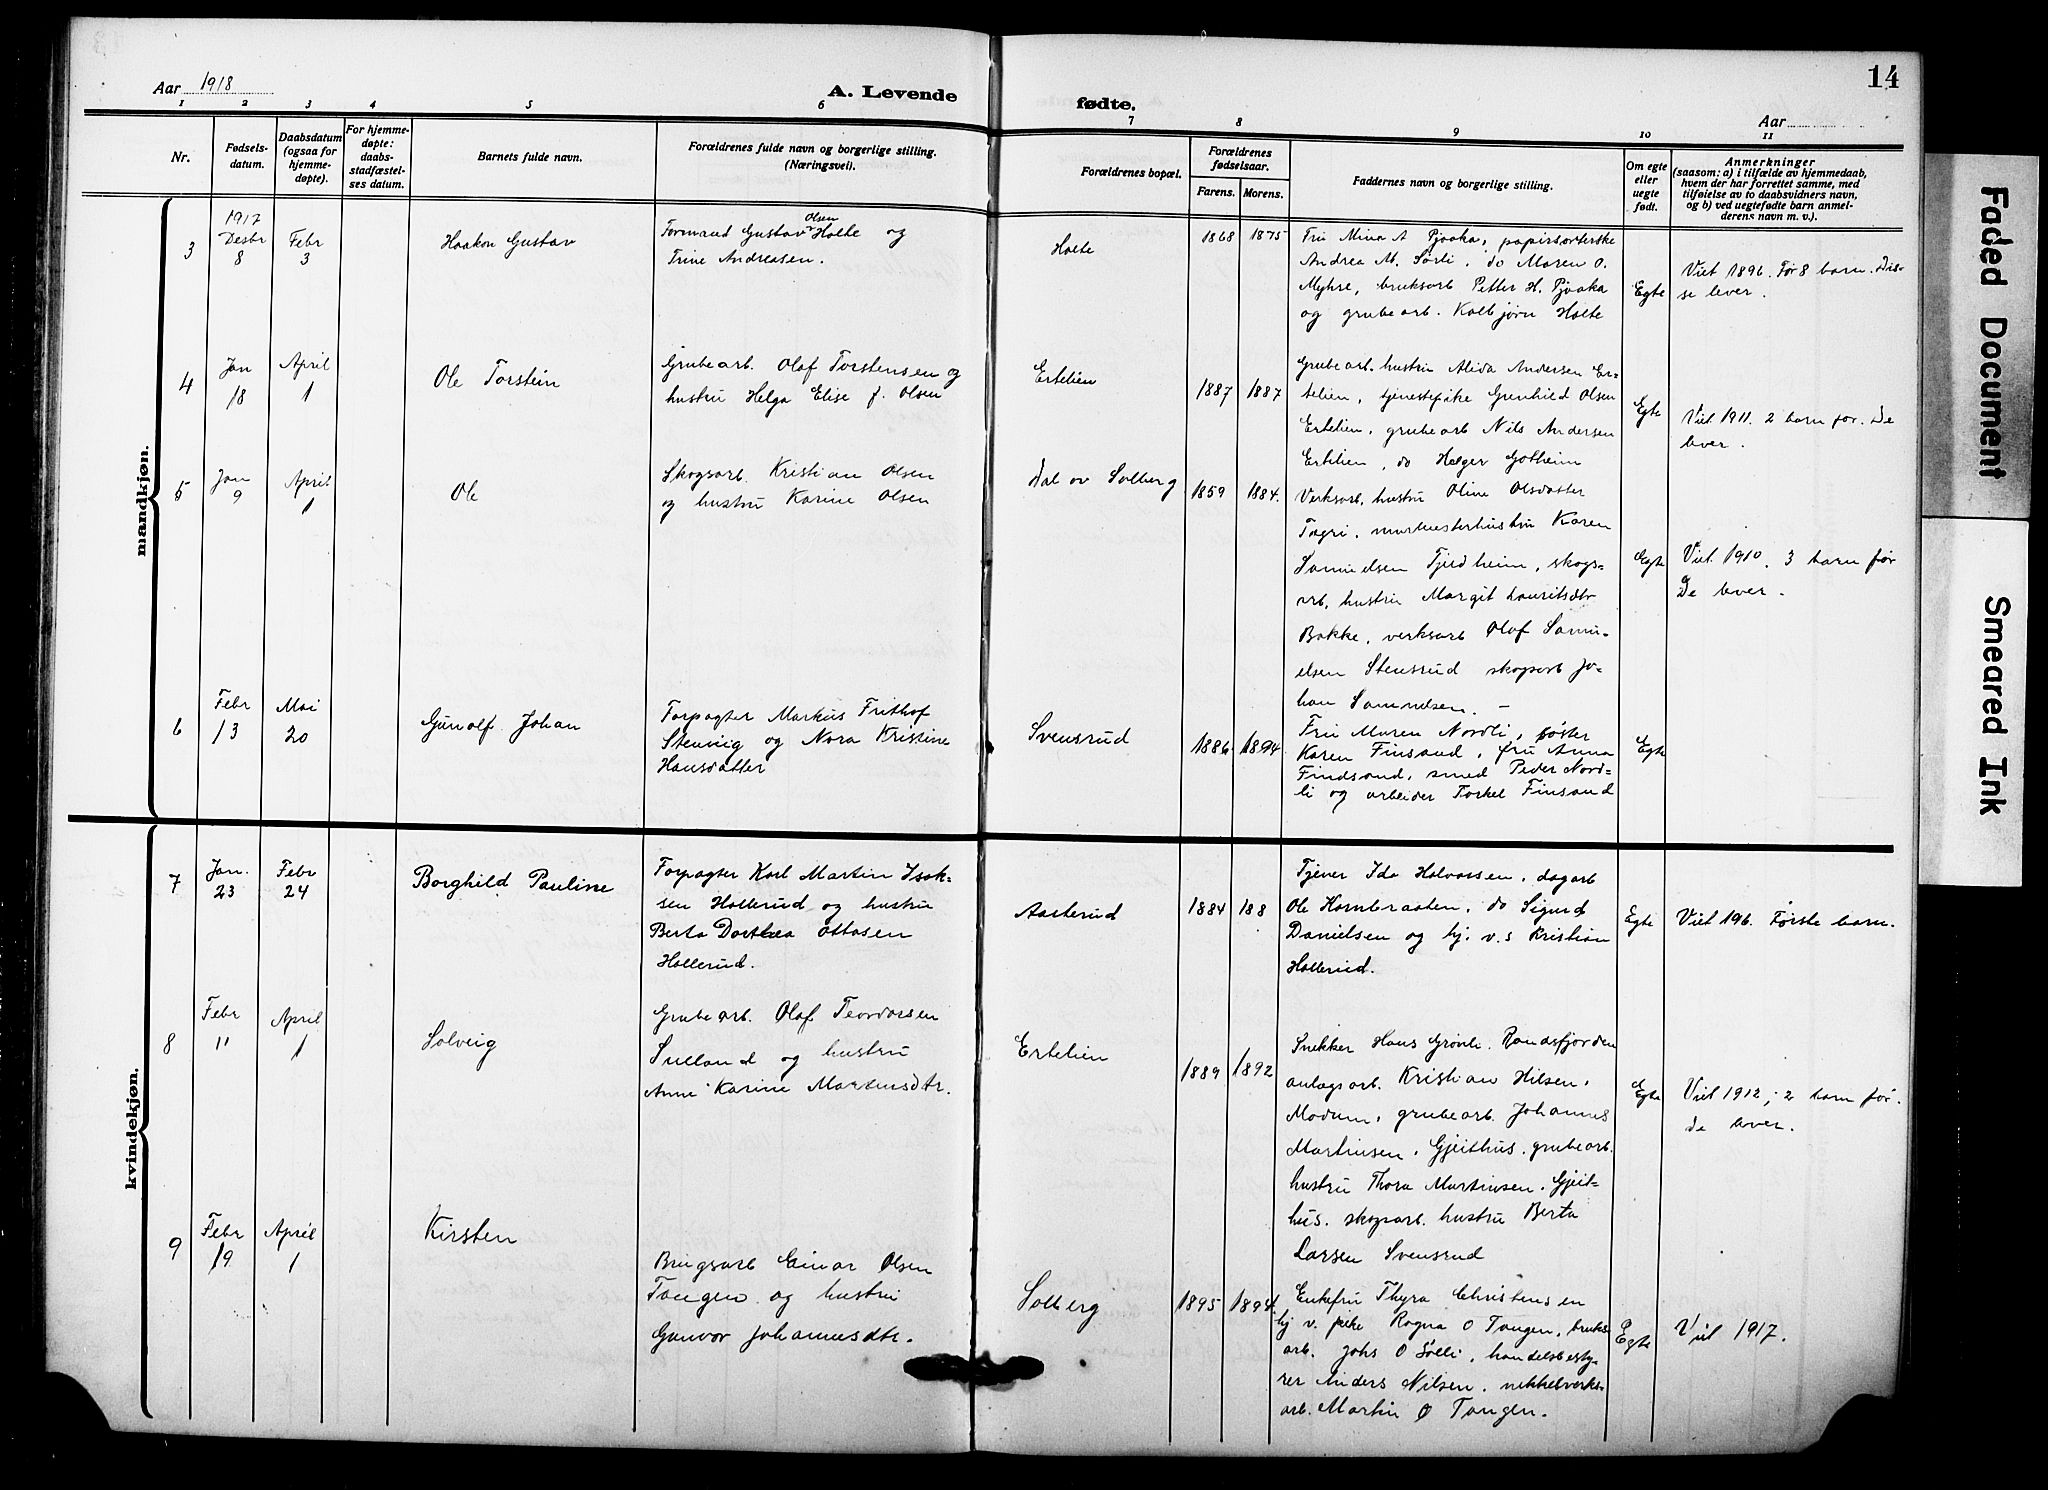 14
Aar 1918
A. Levende
fødte.
Aar
1 2 3 4 5 6 7 8 9 10 11
Nr.
Fødsels-
datum.
Daabsdatum
(ogsaa for
hjemme-
døpte).
For hjemme-
døpte:
daabs-
stadfæstel-
ses datum.
Barnets fulde navn.
Forældrenes fulde navn og borgerlige stilling.
(Næringsvei).
Forældrenes bopæl.
Forældrenes
fødselsaar.
Farens. Morens.
Faddernes navn og borgerlige stilling.
Om egte
eller
uegte
født.
Anmerkninger
(saasom: a) i tilfælde av hjemmedaab,
hvem der har forrettet samme, med
tilføielse av to daabsvidners navn,
og b) ved uegtefødte barn anmel-
derens navn m. v.).
mandkjøn.
3
1917
Desbr
8
Febr
3
Haakon Gustav
Olsen
Formand Gustav Holte og
Trine Andreasen.
Holte
1868 1875
Fru Mina A Pjaaka, papirsorterske
Andrea M. Sørli, do Maren O.
Myhre, bruksarb Petter H. Pjaaka
og grubearb. Kolbjørn Holte
Egte
Viet 1896. Før 8 barn. Dis-
se lever.
4
Jan
18
April
1
Ole Torstein
Grubearb. Olaf Torstensen og
hustru Helga Elise f. Olsen
Ertelien
1887 1887
Grubearb. hustru Alida Andersen Er-
telien, tjenestepike Grenhild Olsen
Ertelien, grubearb Nils Andersen
Ertelien, do Helger Gotheim
Egte
Viet 1911. 2 barn før. De
lever.
5
Jan
9
April
1
Ole
Skogsarb. Kristian Olsen
og hustru Karine Olsen
Dal av Solberg
1859 1884.
Verksarb. hustru Oline Olsdatter
Tagri, murmesterhustru Karen
Samuelsen Tjerdheim, skogs-
arb. hustru Margit Lauritsdtr
Bakke, verksarb Olaf Samu-
elsen Stensrud skogsarb Jo-
han Samuelsen. –
Egte
Viet 1910. 3 barn før
De lever.
6
Febr
13
Mai
20
Gunolf Johan
Forpagter Markus Frithof
Stenvig og Nora Kristine
Hansdatter
Svensrud
1886 1894
Fru Maren Nordli, søster
Karen Finsand, fru Anna
Findsand, smed Peder Nord-
li og arbeider Torkel Finsand
Egte
kvindekjøn.
7
Jan.
23
Febr
24
Borghild Pauline
Forpagter Karl Martin Isak-
sen Hollerud og hustru
Berta Dorthea Ottosen
Hollerud.
Aasterud
1884 188
Tjener Ida Halvorsen, dagarb
Ole Kornbraaten, do Sigurd
Danielsen og hj. v.s Kristian
Hollerud.
Egte
Viet 196. Første barn.
8
Febr
11
April
1
Solveig
Grubearb. Olaf Teordorsen
Sulland og hustru
Anne Karine Martinsdtr.
Ertelien
1889 1892
Snekker Hans Grønli. Randsfjorden
anlagsarb. Kristian Hilsen,
Modum, grubearb. Johannes
Martinsen. Gjeithus. grubearb.
hustru Thora Martinsen. Gjeit-
hus. skogsarb. hustru Berta
Larsen Svensrud
Egte
Viet 1912; 2 barn før.
De lever.
9
Febr
19
April
1
Kirsten
Brugsarb Einar Olsen
Tangen og hustru
Gunvor Johannesdtr.
Solberg
1895 1894.
Enkefru Thyra Christensen
hj v. pike Ragna O Tangen, bruks
arb. Johs O Sølli, handelsbesty-
rer Anders Nilsen. nikkelverks-
arb. Martin O Tangen.
Egte
Viet 1917.
Faded Document
Smeared Ink